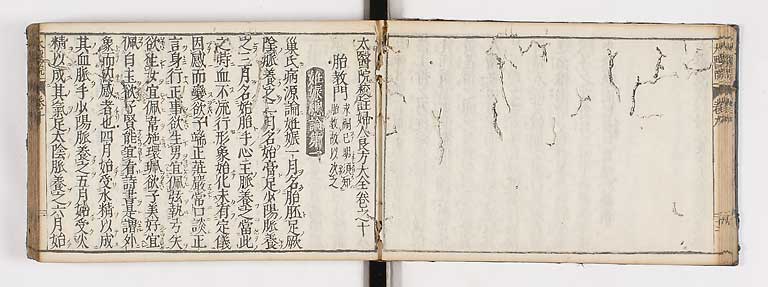 太醫院校註婦人良方大全卷之十
胎教門 求嗣已明須知
胎教故以次之
巢氏病源論姙娠一月名胎胚足厥
陰脈養之二月名始膏足少陽脈養
之三月名始胎手心主脈養之當此
之時血不流行形象始化未有定儀
因感而變欲子端正莊嚴常口談正
言身行正事欲生男宜佩弦執弓矢
欲生女宜佩帶施環珮欲子美好宜
佩白玉欲子賢能宜看詩書是謂外
象而內感者也四月始受水精以成
其血脈手少陽脈養之五月始受火
精以成其氣足太陰脈養之六月始